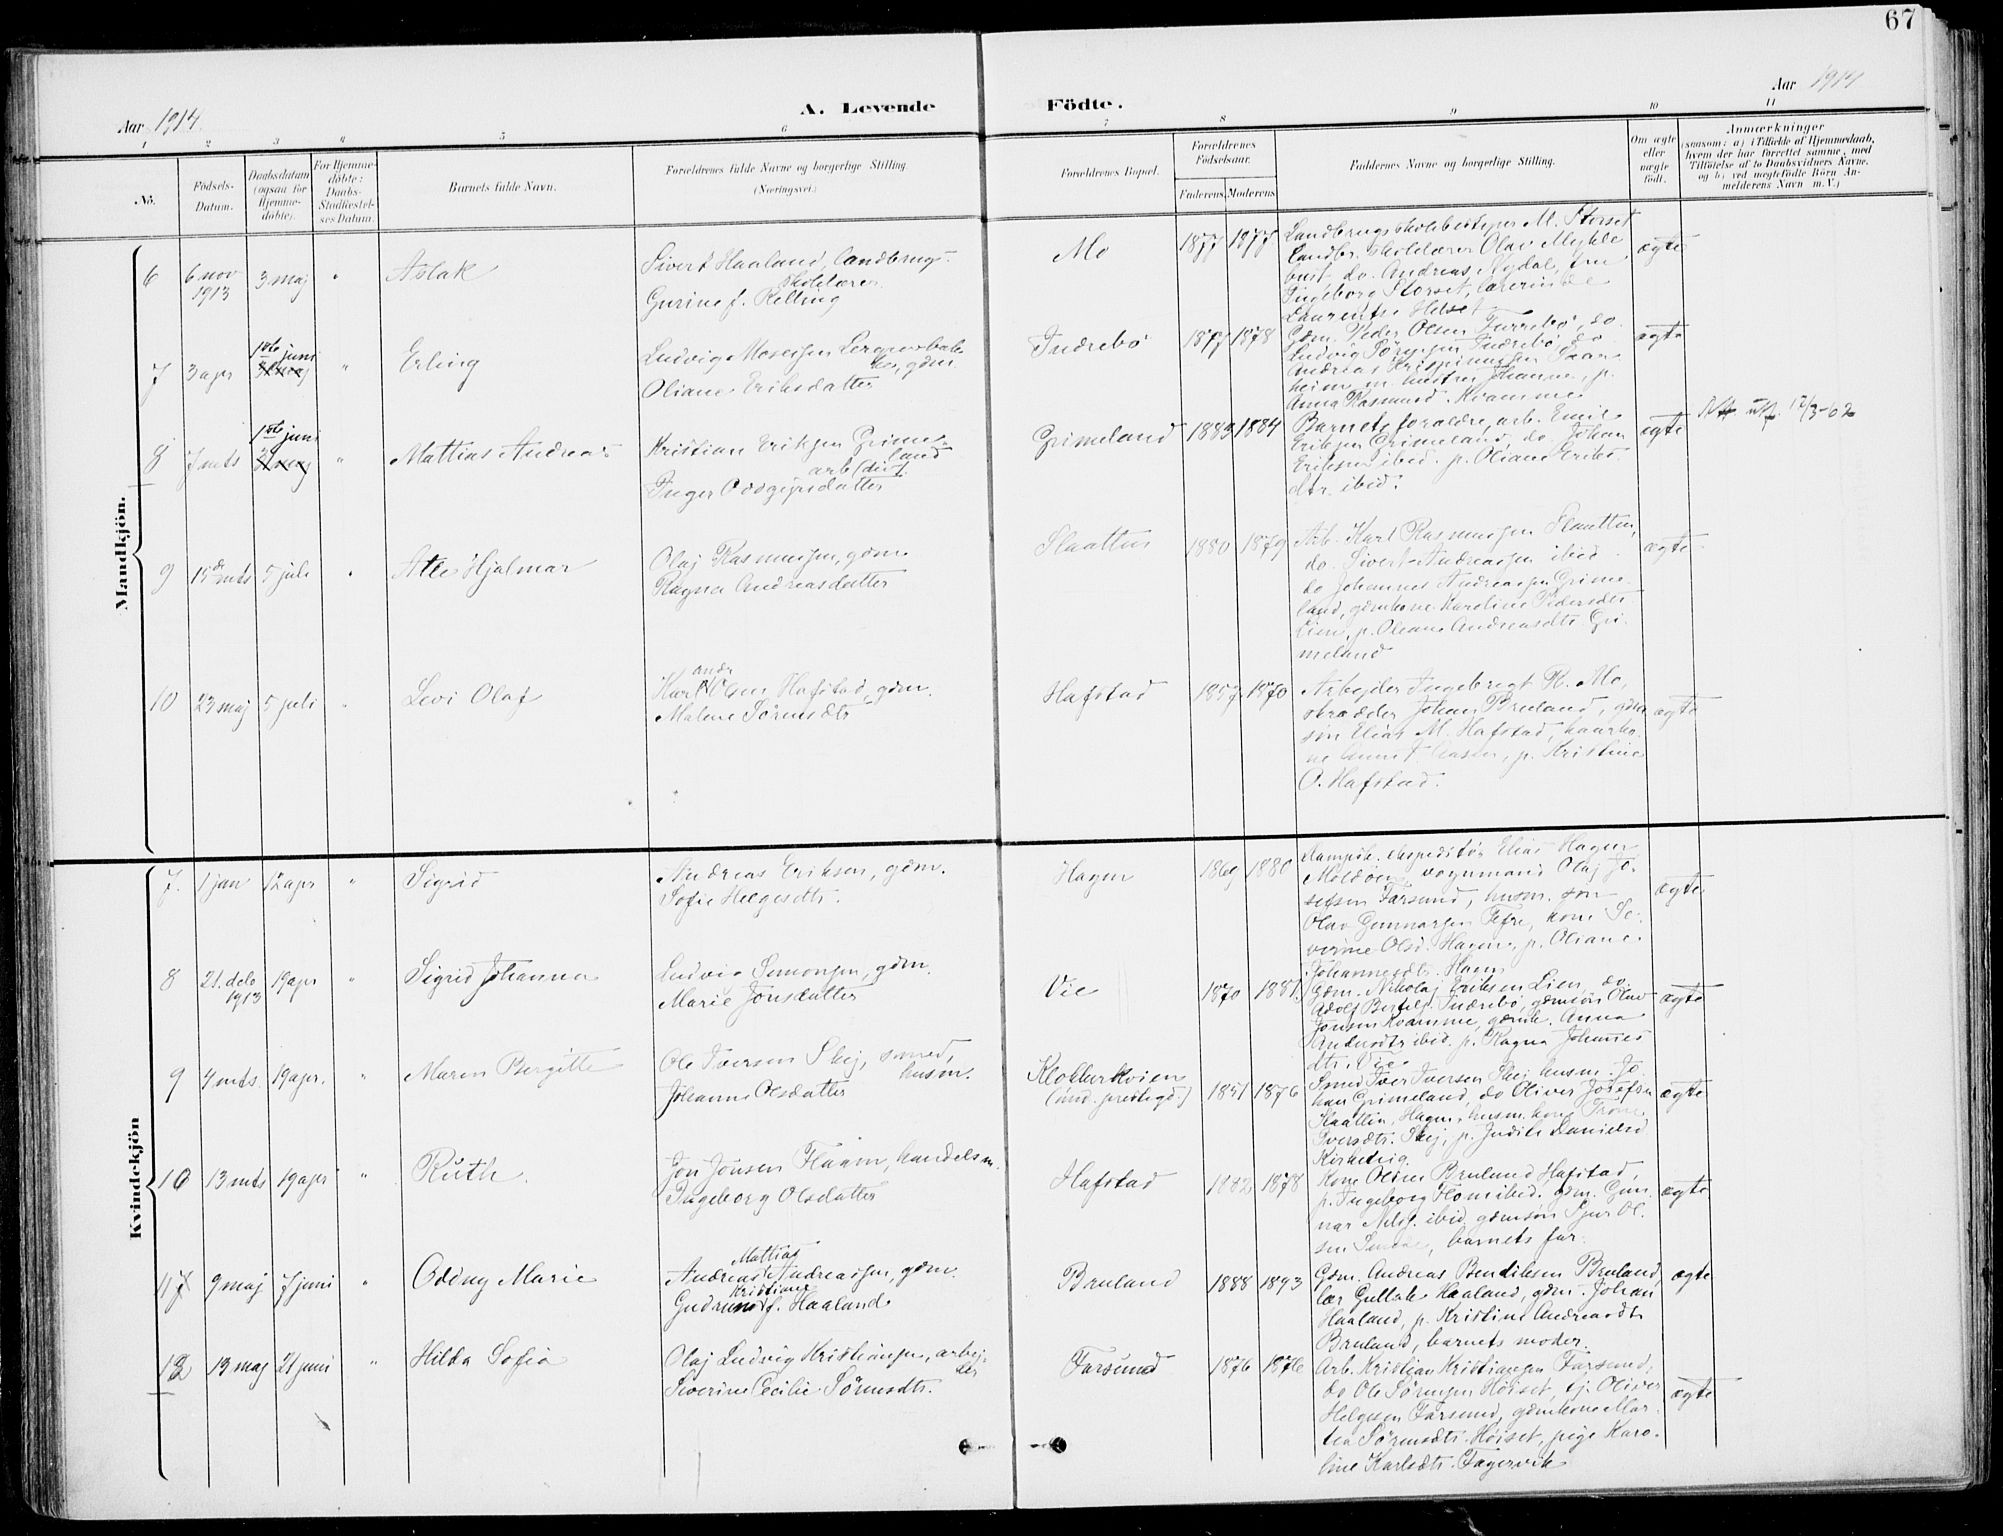 67
Aar 1914.
A. Levende Födte.
Aar 1914
1 2 3 4 5 6 7 8 9 10 11
No.
Födsels-
Datum.
Daabsdatum
(ogsaa for
Hjemme-
döbte).
For Hjemme-
döbte:
Daabs-
Stadfæstel-
ses Datum.
Barnets fulde Navn.
Forældrenes fulde Navne og borgerlige Stilling.
(Næringsvei.)
Forældrenes Bopæl.
Forældrenes
Födselsaar.
Faderens. Moderens.
Faddernes Navne og borgerlige Stilling.
Om ægte
eller
uægte
födt.
Anmærkninger
(saasom: a) i Tilfælde af Hjemmedaab,
hvem der har forrettet samme, med
Tilföielse af to Daabsvidners Navne.
og b) ved uægtefödte Börn An-
melderens Navn m. V.)
Mandkjön.
6 6 nov 1913 3 maj " Aslak
Sivert Haaland, landbrugs-
skolelærer
Gurine f. Kelling
Mo 1877 1877
Landbrugsskolebestyrer M. Storset
Landbr. skolelærer Olav Mykle
bust, do. Andreas Nydal, fru
Ingeborg Storset, lærerinde
Laurentse Helset
ægte
7 3 apr 1ste juni " Erling
Ludvig Mosessen
gdm.
Oliane Eriksdatter
Indrebø 1877 1878
Gdm. Peder Olsen Furrebø, do
Ludvig Sørensen Indrebø, do
Andreas Krispinussen Gaar
heim m. hustru Johanne, p.
Anna Rasmusd. Kvamme
ægte
8 7 mts 1ste juni " Mattias Andreas
Kristian Eriksen Grime-
land
arb
Inger Oddgejrsdatter
Grimeland 1883 1884
Barnets forældre, arb. Emil
Eriksen Grimeland, do. Johan
Eriksen ibid. p. Oliane Eriks-
dtr. ibid.
ægte
12/3-62
9 15de mts 5 juli " Atle Hjalmar
Olaj Rasmussen, gdm.
Ragna Andreasdatter
Slaatten 1880 1879
Arb. Karl Rasmussen Slaatten,
do. Sivert Andreassen ibid.
do Johannes Andreassen Grime-
land, gdmkone Karoline Pedersdtr
Lien, p. Oleane Andreasdtr. Gri-
meland
ægte
10 23 maj 5 juli " Levi Olaf
andr
Karl Olsen Hafstad, gdm.
Malene Sørensdtr
Hafstad 1857 1870
Arbejder Ingebregt R. Mo,
skrædder Johan Bruland, gdm
søn Elias M. Hafstad, kaarko-
ne Anne Aasen, p. Kristine
O. Hafstad.
ægte
Kvindekjön
7. 1 jan 12 apr " Sigrid
Andreas Eriksen, gdm.
Sofie Helgesdtr.
Hagen 1869 1880
Dampsk. ekspeditør Elias Hagen
Moldøen, vognmand Olaj Jo-
sefsen Farsund, husm. søn
Olav Gunnarsen Tefre, kone Se-
verine Olsd. Hagen, p. Oliane
Johannesdtr. Hagen
ægte
8 21. dcb 1913 19 apr " Sigrid Johanna
Ludvig Simonsen, gdm.
Marie Jonsdatter
Vie 1870 1881
Gdm. Nikolaj Eriksen Lien, do.
Adolf Bertels. Indrebø, gdmsøn Olav
Jonsen Kvamme, gdmk. Anna
Andersdtr ibid. p. Ragna Johannes
dtr. Vie
ægte
9 4 mts. 19 apr. " Maren Bergitte
Ole Iversen Skej, smed,
husm.
Johanne Olsdatter
Klokkerkvien
(und. prestegd.) 1851 1876
Smed Iver Iversen Skej husm. Jo-
han Grimeland, do Oliver Josefsen
Slaatten, Hagen, husm. kone Trone
Iversdtr. Skej, p. Judith Danielsd
Kirketeig
ægte
10 13 mts 19 apr " Ruth.
Jon Jonsen Flaam, handelsm.
Ingeborg Olsdatter
Hafstad 1882 1878
Kone Oline Bruland Hafstad,
p. Ingeborg Flom ibid. gdm. Gun-
nar Nils. ibid gdmsøn Sjur Ol-
sen, barnets far.
ægte
11 9 maj 7 juni " Oddny Marie
Mattias
Andreas Andreassen, gdm.
Kristiane
Gudrun f. Haaland
Bruland 1888 1893
Gdm. Andreas Bendiksen Bruland,
lær Gullak Haaland, gdm. Johan
Haaland, p. Kristine Andreasdtr
Bruland, barnets moder.
ægte
12 13 maj 21 juni " Hilda Sofia
Olaj Ludvig Kristiansen, arbej-
der
Severine Cecilie Sørensdtr.
Farsund 1876 1876
Arb. Kristian Kristiansen Farsund,
do Ole Sørensen Høiset, tj. Oliver
Helgesen Farsund, gdmkone Mar-
tea Sørensdtr. Høiset, pige Karo-
line Karlsdtr. Fagervik
ægte